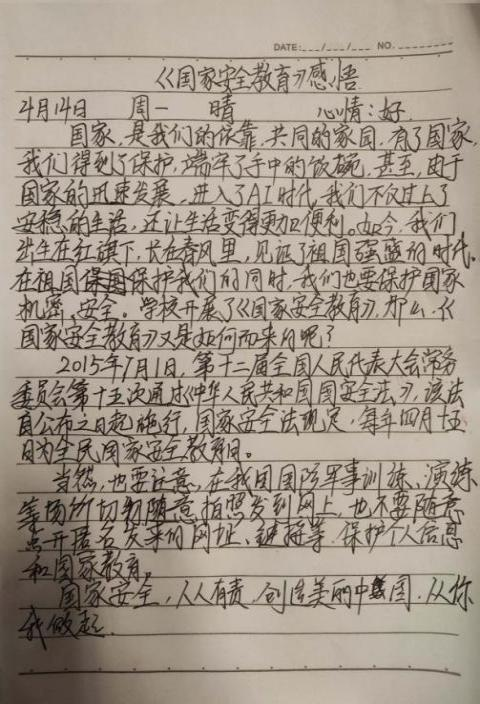 DATE:___/___/___ NO.________
《国家安全教育》感悟
4月14日 周一 晴 心情:好
国家,是我们的依靠,共同的家园,有了国家,
我们得到了保护,端牢了手中的饭碗,甚至,由于
国家的迅速发展,进入了AI时代,我们不仅过上了
安稳的生活,还让生活变得更加便利。如今,我们
出生在红旗下,长在春风里,见证了祖国强盛的时代。
在祖国保护我们的同时,我们也要保护国家
机密、安全。学校开展了《国家安全教育》,那么,《
国家安全教育》又是如何而来的呢?
2015年7月1日,第十二届全国人民代表大会常务
委员会第十五次通过《中华人民共和国国安全法》,该法
自公布之日起施行,国家安全法规定,每年四月十五
日为全民国家安全教育日。
当然,也要注意,在我国国防军事训练、演练
等场所切勿随意拍照发到网上,也不要随意
点开匿名发来的网址、链接等,保护个人信息
和国家教育。
国家安全,人人有责,创造美丽中国,从你
我做起.